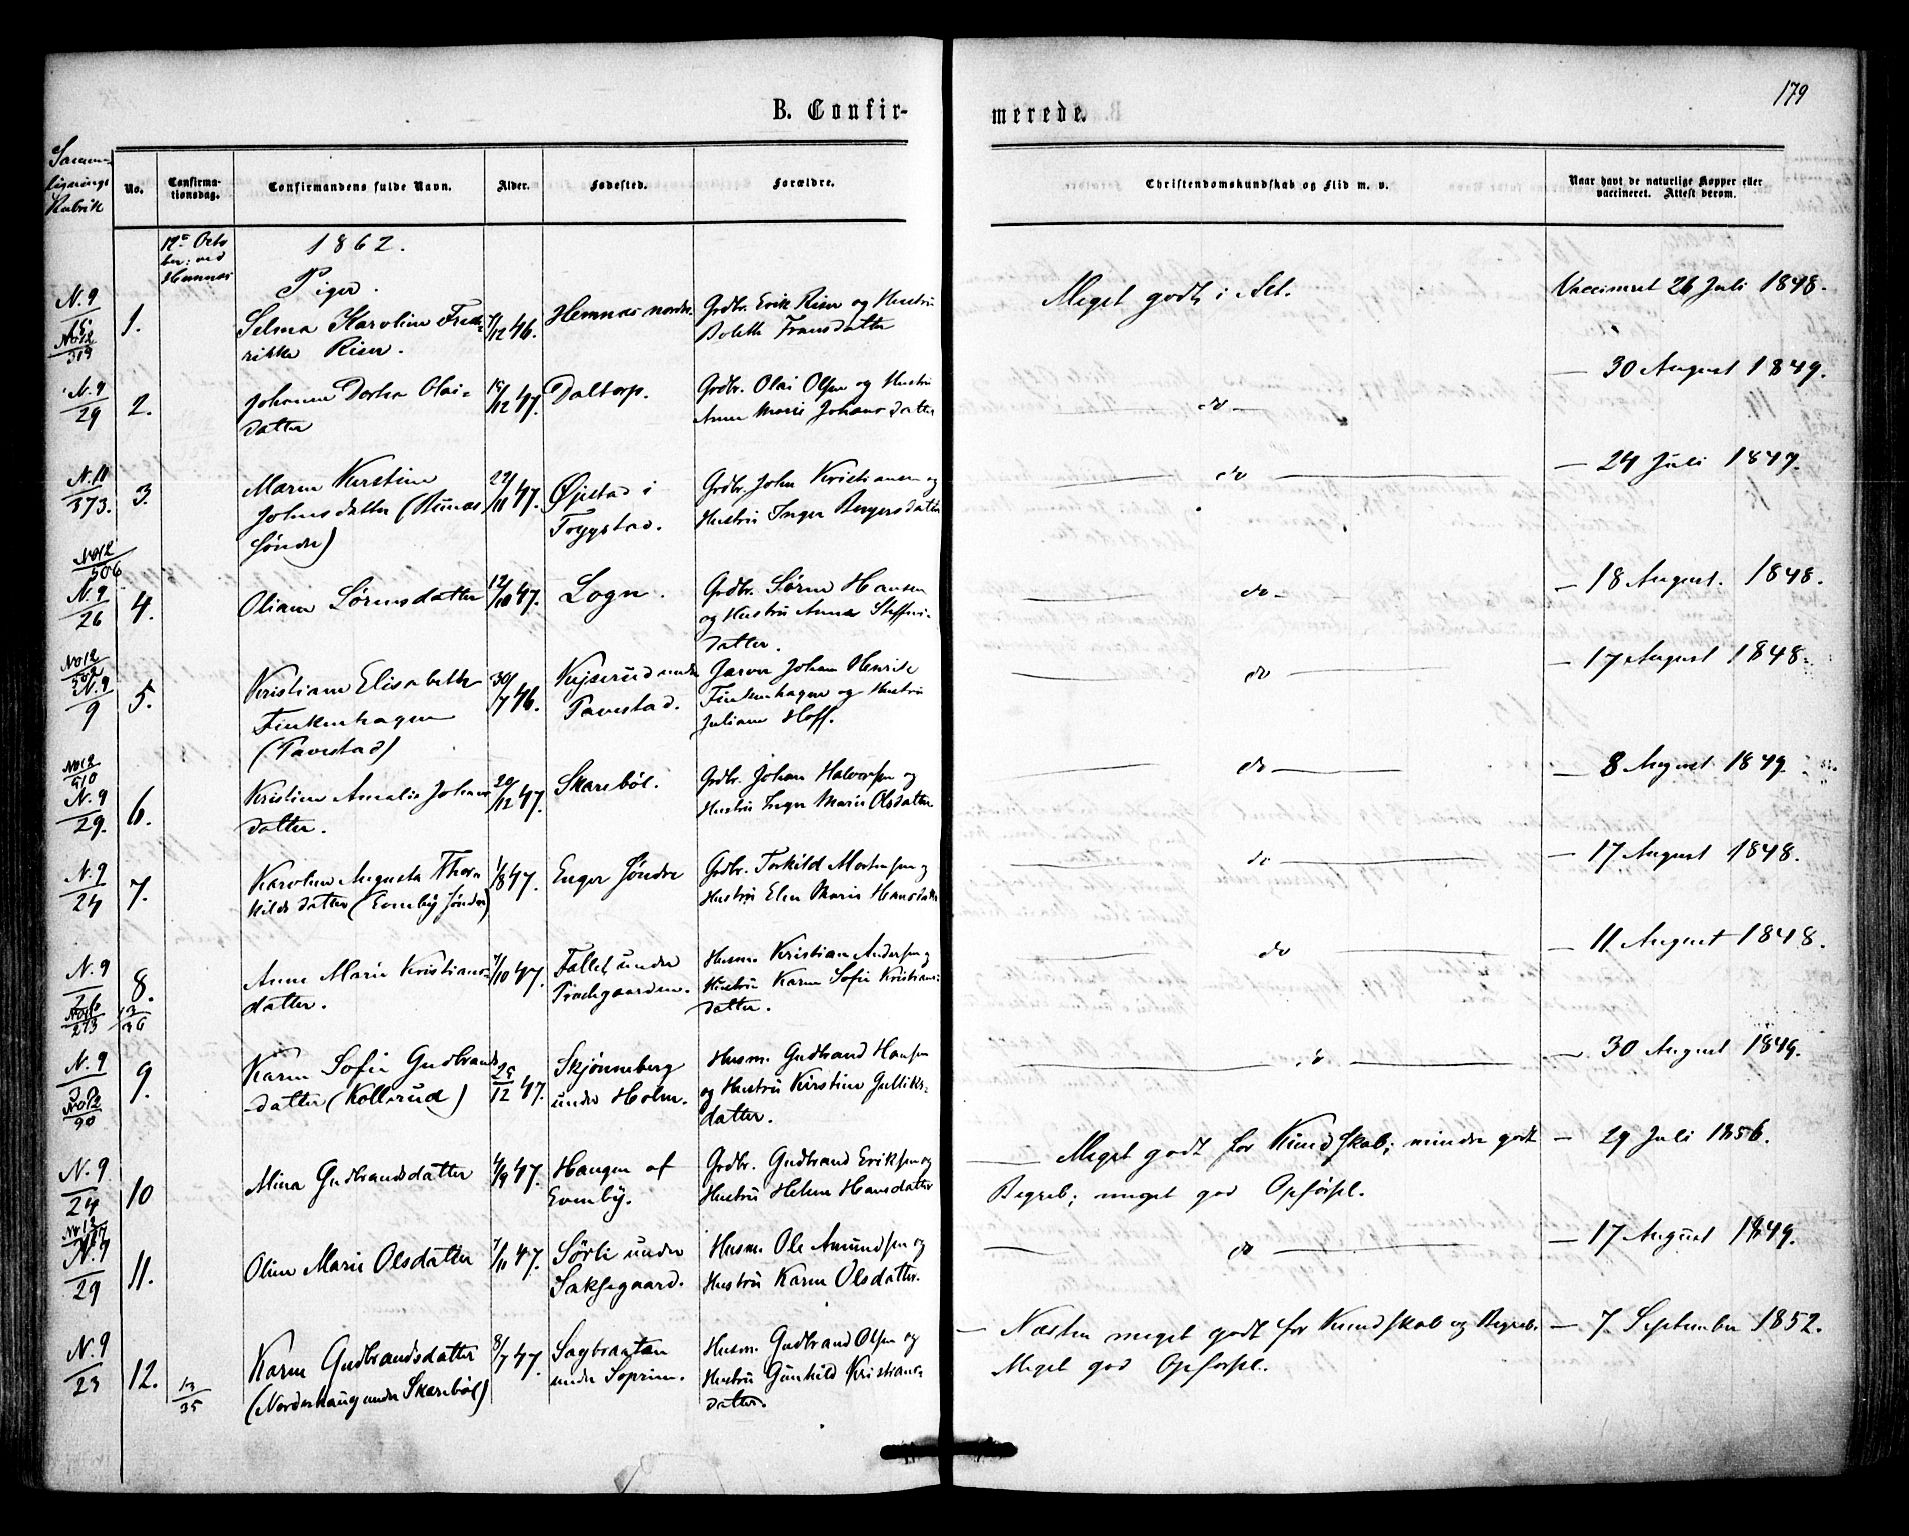 179
B. Confir-
merede.
Sammen-
lignings
Rubrik
No.
Confirma-
tionsdag.
Confirmandens fulde Navn.
Alder.
Fødested.
Forældre.
Christendomskundskab og Flid m. v.
Naar havt de naturlige Kopper eller
vaccineret. Attest derom.
12te Octo
ber: ved
Hemnæs
1862.
Piger.
N. 9
15
No 12
1.
Selma Karoline Frede-
rikke Riser.
7/12 46.
Hemnæs nordre
Grdbr. Erik Riser og Hustru
Bolette Fransdatter
Meget godt i Alt.
Vaccineret 26 Juli 1848.
N. 9
29
2.
Johanne Dorthea Olai-
datter
15/12 47.
Daltorp.
Grdbr. Olai Olsen og Hustru
Anne Marie Johansdatter
— do —
— 30 August 1849.
N. 11
373.
3.
Maren Kirstine
Johnsdatter (Bunæs
Søndre)
22/11 47.
Øjestad i
Trygstad.
Grdbr. John Kristiansen og
Hustru Inger Bergersdatter
— do —
— 24 Juli 1847.
No 12
506
N. 9
26
4.
Oliane Sørensdatter
12/10 47.
Logn.
Grdbr. Søren Hansen
og Hustru Anne Steffens-
datter.
— do —
— 18 August. 1848.
No 12
502
N. 9
9
5.
Kristiane Elisabeth
Finkenhagen
(Tavestad)
30/7 46.
Kejserud under
Tavestad.
Farver Johan Henrik
Finkenhagen og Hustru
Juliane Hoff.
— do —
— 17 August 1848.
No 12
510
N. 9
29.
6.
Kristine Amalie Johans
datter.
20/12 47.
Skarebøl.
Grdbr. Johan Halvorsen og
Hustru Inger Marie Olsdatter
— do —
— 8 August 1849
N. 9
24
7.
Karoline Augusta Thor-
kildsdatter (Evenby Søndre)
1/8 47.
Enger Søndre
Grdbr. Torkild Mortensen og
Hustru Elen Marie Hansdatter
— do —
— 17 August 1848.
N. 9
26
273
8.
13/36
Anne Marie Kristians-
datter.
7/10 47.
Fallet under
Præstegaarden.
Husm. Kristian Andersen og
Hustru Karen Sofie Kristians-
datter.
— do —
— 11. August 1848.
N. 9
No 12
90
9.
Karen Sofie Gudbrands
datter (Kollerud)
25/12 47.
Skjønneberg
under Holm.
Husm. Gudbrand Hansen
og Hustru Kirstine Gulliks-
datter.
— do —
— 30 August 1849.
N. 9
24
10
Mina Gudbrandsdatter
4/9 47.
Haugen af
Evenby.
Grdbr. Gudbrand Eriksen og
Hustru Helene Hansdatter
— Meget godt for Kundskab; mindre godt
Begreb; meget god Opførsel.
— 29 Juli 1856.
No 12
N. 9
29
11.
Oline Marie Olsdatter
7/11 47.
Sørli under
Saksegaard.
Husm. Ole Amundsen og
Hustru Karen Olsdatter.
— do —
— 17 August 1849.
N. 9
23
12.
13/35
Karen Gudbrandsdatter
(Nordenhaug under Skarebøl)
8/7 47.
Sagbraatan
under Soprim.
Husm. Gudbrand Olsen og
Hustru Gunhild Kristians-
datter.
— Næsten meget godt for Kundskab og Begreb.
Meget god Opførsel.
— 7. September 1852.